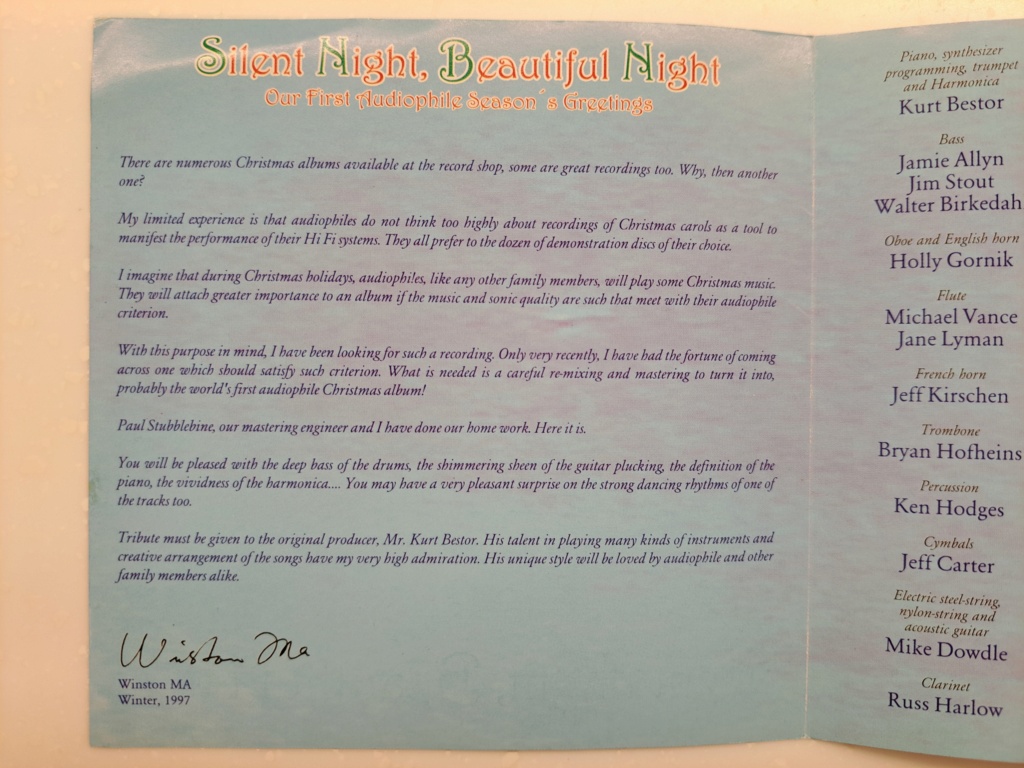 Silent Night, Beautiful Night
Our First Audiophile Season´s Greetings
There are numerous Christmas albums available at the record shop, some are great recordings too. Why, then another
one?
My limited experience is that audiophiles do not think too highly about recordings of Christmas carols as a tool to
manifest the performance of their Hi Fi systems. They all prefer to the dozen of demonstration discs of their choice.
I imagine that during Christmas holidays, audiophiles, like any other family members, will play some Christmas music.
They will attach greater importance to an album if the music and sonic quality are such that meet with their audiophile
criterion.
With this purpose in mind, I have been looking for such a recording. Only very recently, I have had the fortune of coming
across one which should satisfy such criterion. What is needed is a careful re-mixing and mastering to turn it into,
probably the world's first audiophile Christmas album!
Paul Stubblebine, our mastering engineer and I have done our home work. Here it is.
You will be pleased with the deep bass of the drums, the shimmering sheen of the guitar plucking, the definition of the
piano, the vividness of the harmonica.... You may have a very pleasant surprise on the strong dancing rhythms of one of
the tracks too.
Tribute must be given to the original producer, Mr. Kurt Bestor. His talent in playing many kinds of instruments and
creative arrangement of the songs have my very high admiration. His unique style will be loved by audiophile and other
family members alike.
Winston Ma
Winston MA
Winter, 1997
Piano, synthesizer
programming, trumpet
and Harmonica
Kurt Bestor
Bass
Jamie Allyn
Jim Stout
Walter Birkedah
Oboe and English horn
Holly Gornik
Flute
Michael Vance
Jane Lyman
French horn
Jeff Kirschen
Trombone
Bryan Hofheins
Percussion
Ken Hodges
Cymbals
Jeff Carter
Electric steel-string,
nylon-string and
acoustic guitar
Mike Dowdle
Clarinet
Russ Harlow